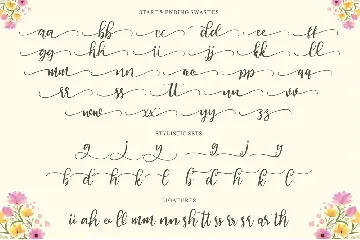 START & ENDING SWASHES
aa bb cc dd ee ff
gg hh ii jj kk ll
mm nn oo pp qq
rr ss tt uu vv
ww xx yy zz
STYLISTIC SETS
g j y g j y
b d h k l b d h k l
LIGATURES
ah ll mm nn sh tt ss rr sr ar th